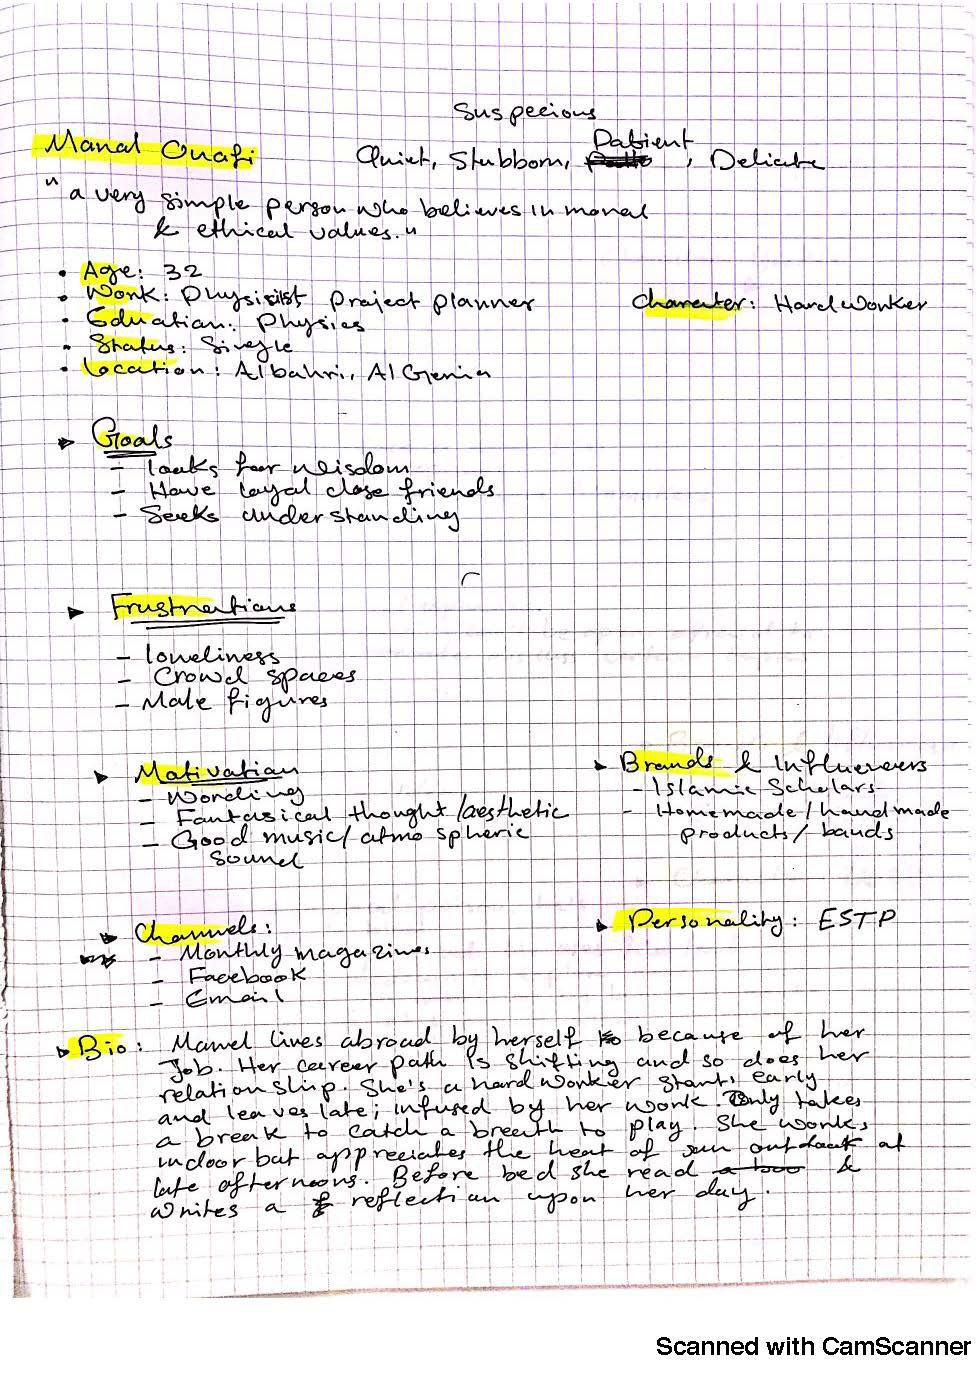 Suspecious
Manal Ouafi
Quiet, Stubborn, Patient, Delicate
"a very simple person who believes in moral
& ethical values."
• Age: 32
• Work: Physisist project planner
Charecter: Hardworker
• Eduation: Physics
• Status: Single
• Location: Albahri, AlGeria
➤ Goals
- looks for wisdom
- Have loyal close friends
- Seeks understanding
➤ Frustrations
- loneliness
- Crowd spaces
- Male figures
➤ Motivation
- Wording
- Fantasical thought/aesthetic
- Good music/atmospheric
sound
➤ Brands & Influencers
- Islamic Scholars
- Homemade/handmade
products/bands
➤ Channels:
- Monthly magazines
- Facebook
- Email
➤ Personality: ESTP
➤ Bio: Manel lives abroad by herself because of her
Job. Her career path is shifting and so does her
relationship. She's a hard worker starts early
and leaves late; infused by her work. Only takes
a break to catch a breath to play. She works
indoor but appreciates the heat of sun at
late afternoons. Before bed she read &
writes a reflection upon her day.
Scanned with CamScanner